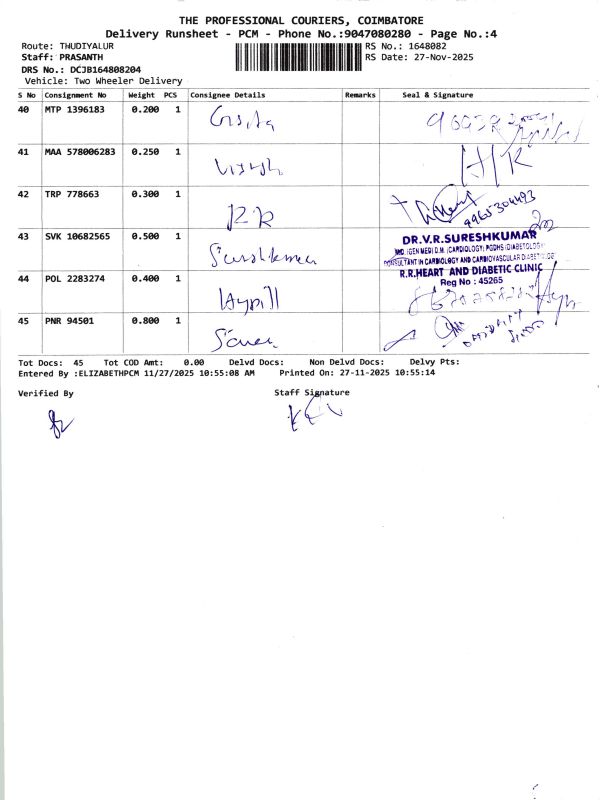 THE PROFESSIONAL COURIERS, COIMBATORE
Delivery Runsheet - PCM - Phone No.:9047080280 - Page No.:4
Route: THUDIYALUR
RS No.: 1648082
Staff: PRASANTH
RS Date: 27-Nov-2025
DRS No.: DCJB164808204
Vehicle: Two Wheeler Delivery
S No Consignment No Weight PCS Consignee Details Remarks Seal & Signature
40 MTP 1396183 0.200 1
41 MAA 578006283 0.250 1
42 TRP 778663 0.300 1
9965304493
43 SVK 10682565 0.500 1 Sureshkumar
DR.V.R.SURESHKUMAR
MD (GEN MED) D.M. (CARDIOLOGY) PGDHS (DIABETOLOGY)
CONSULTANT IN CARDIOLOGY AND CARDIOVASCULAR DIABETOLOGY
R.R.HEART AND DIABETIC CLINIC
Reg No : 45265
44 POL 2283274 0.400 1
45 PNR 94501 0.800 1
Tot Docs: 45 Tot COD Amt: 0.00 Delvd Docs: Non Delvd Docs: Delvy Pts:
Entered By :ELIZABETHPCM 11/27/2025 10:55:08 AM Printed On: 27-11-2025 10:55:14
Verified By Staff Signature